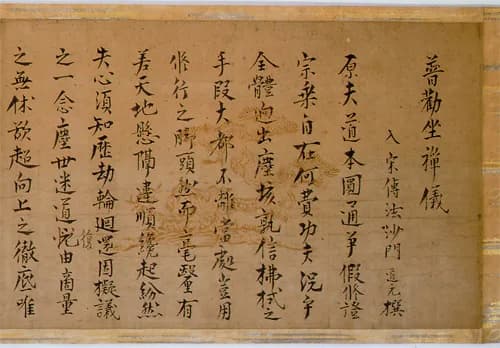 普勸坐禪儀
入宋傳法沙門道元撰
原夫道本圓通爭假修證
宗乘自在何費功夫況乎
全體逈出塵埃孰信拂拭之
手段大都不離當處豈用
修行之脚頭然而毫釐有
差天地懸隔違順纔起紛然
失心須知歷劫輪迴還因擬議
之一念塵世迷道復由商量
之無休欲超向上之徹底唯